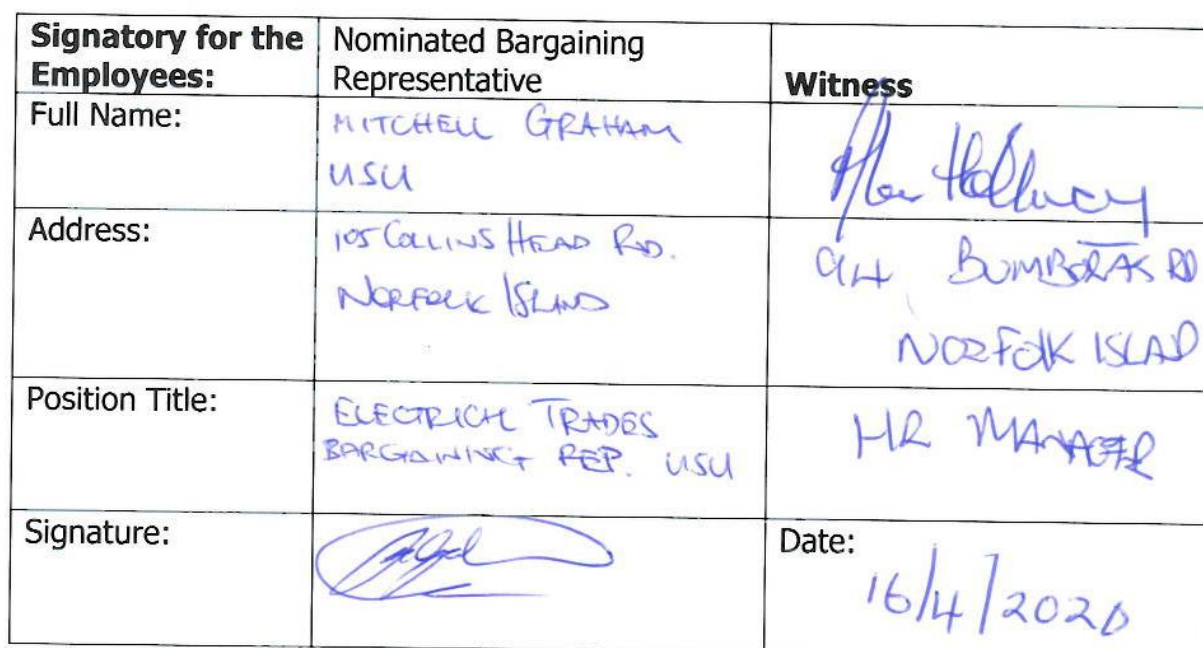 Signatory for the Employees: Nominated Bargaining Representative Witness
Full Name: MITCHELL GRAHAM
USU
Address: 105 COLLINS HEAD RD. NORFOLK ISLAND
BUMBORAS RD
NORFOLK ISLAD
Position Title: ELECTRICAL TRADES
BARGAINING REP. USU
HR MANAGER
Signature:
Date: 16/4/2020